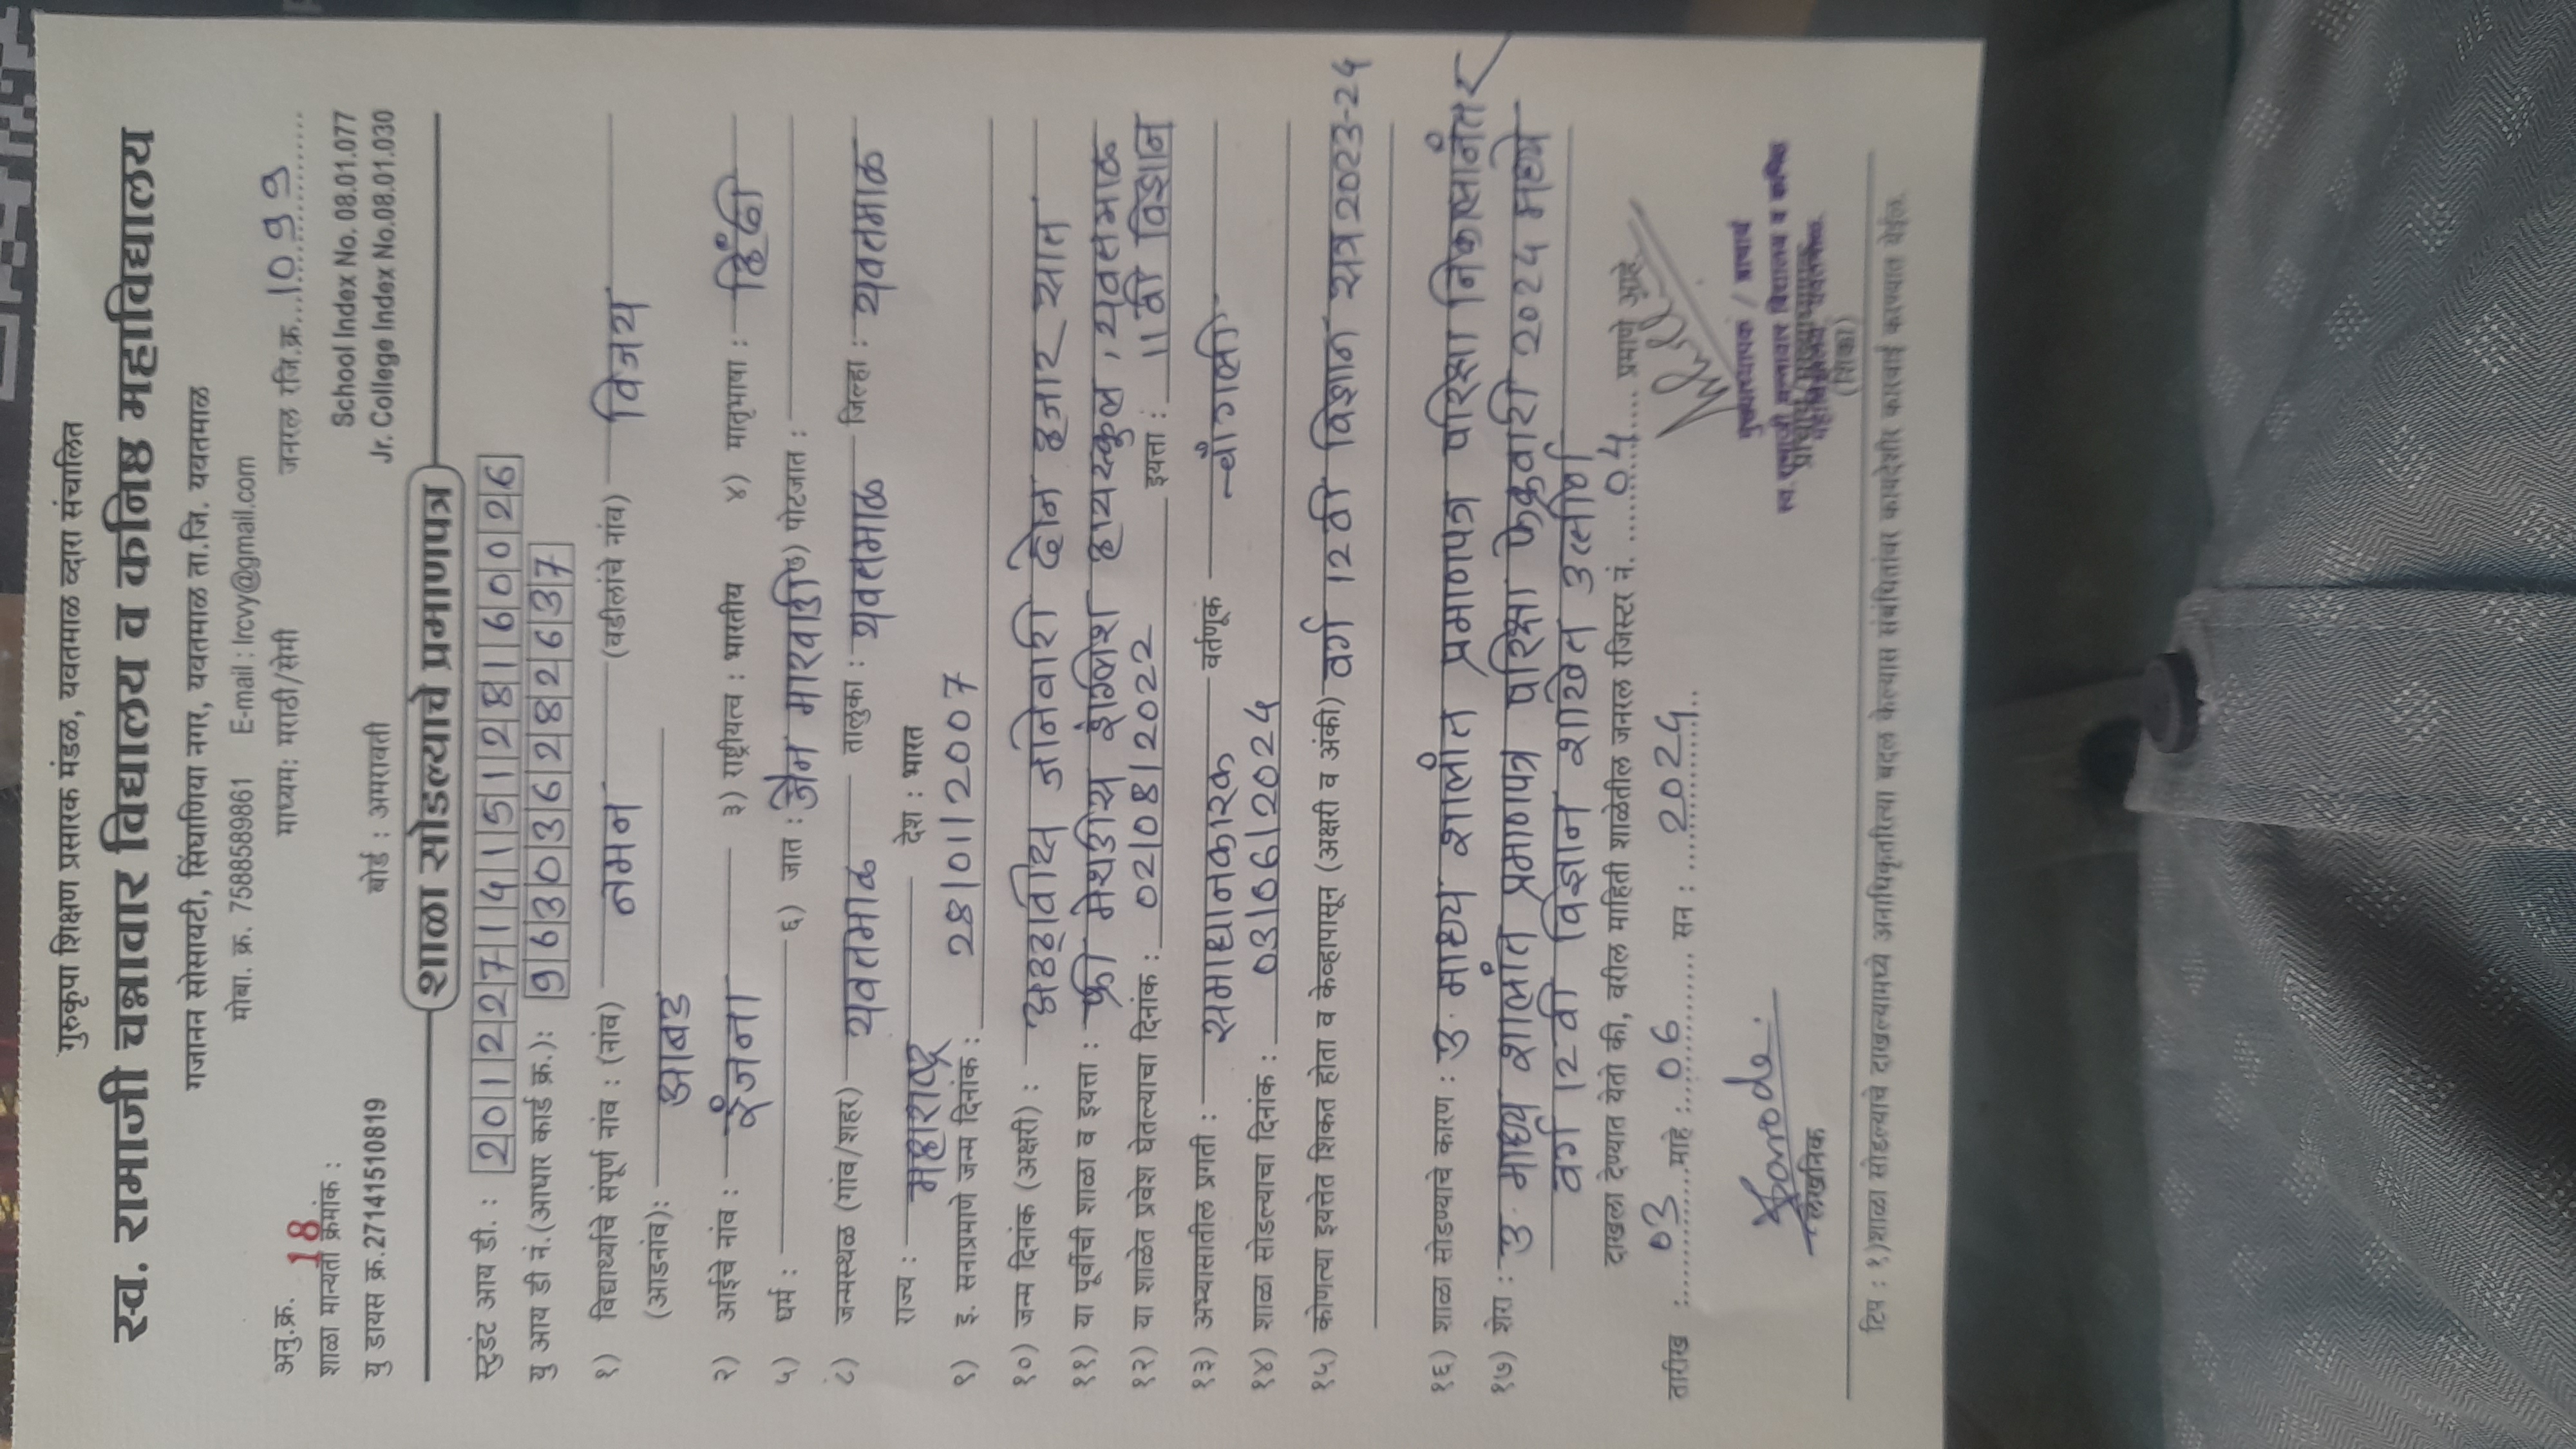 गुरुकृपा शिक्षण प्रसारक मंडळ, यवतमाळ व्दारा संचालित
स्व. रामाजी चन्नावार विद्यालय व कनिष्ठ महाविद्यालय
गजानन सोसायटी, सिंघाणिया नगर, यवतमाळ ता.जि. यवतमाळ
मोबा. क्र. 7588589861 E-mail : lrcvy@gmail.com
अनु.क्र. 18 माध्यम: मराठी/सेमी जनरल रजि.क्र. 1099
शाळा मान्यता क्रमांक : School Index No. 08.01.077
यु डायस क्र.27141510819 बोर्ड : अमरावती Jr. College Index No.08.01.030
शाळा सोडल्याचे प्रमाणपत्र
स्टुडंट आय डी. : 2012271415128160026
यु आय डी नं.(आधार कार्ड क्र.): 963036282637
१) विद्यार्थ्याचे संपूर्ण नांव : (नांव) नमन (वडीलांचे नांव) विजय
(आडनांव): आबड
२) आईचे नांव : ३) राष्ट्रीयत्व : भारतीय ४) मातृभाषा : हिंदी
५) धर्म : ६) जात : जैन मारवाडी ७) पोटजात :
८) जन्मस्थळ (गांव/शहर) यवतमाळ तालुका : यवतमाळ जिल्हा : यवतमाळ
राज्य : महाराष्ट्र देश : भारत
९) इ. सनाप्रमाणे जन्म दिनांक : 28/01/2007
१०) जन्म दिनांक (अक्षरी) : अठ्ठावीस जानेवारी दोन हजार सात
११) या पूर्वीची शाळा व इयत्ता : फ्री मेथडीस्ट इंग्लिश हायस्कुल, यवतमाळ
१२) या शाळेत प्रवेश घेतल्याचा दिनांक : 02/08/2022 इयत्ता : 11 वी विज्ञान
१३) अभ्यासातील प्रगती : समाधानकारक वर्तणूक चांगली
१४) शाळा सोडल्याचा दिनांक : 03/06/2024
१५) कोणत्या इयत्तेत शिकत होता व केव्हापासून (अक्षरी व अंकी) वर्ग 12 वी विज्ञान सत्र 2023-24
१६) शाळा सोडण्याचे कारण : उ. माध्य शालांत प्रमाणपत्र परिक्षा निकालानंतर
१७) शेरा : उ. माध्य शालांत प्रमाणपत्र परिक्षा फेब्रुवारी 2024 मध्ये
वर्ग 12 वी विज्ञान शाखेत उत्तीर्ण
दाखला देण्यात येतो की, वरील माहिती शाळेतील जनरल रजिस्टर नं. 04 प्रमाणे आहे.
तारीख : 03 माहे : 06 सन : 2024
लेखनिक
मुख्याध्यापक / प्राचार्य
(शिक्का)
टिप : १)शाळा सोडल्याचे दाखल्यामध्ये अनाधिकृतरित्या बदल केल्यास संबंधितांवर कायदेशीर कारवाई करण्यात येईल.